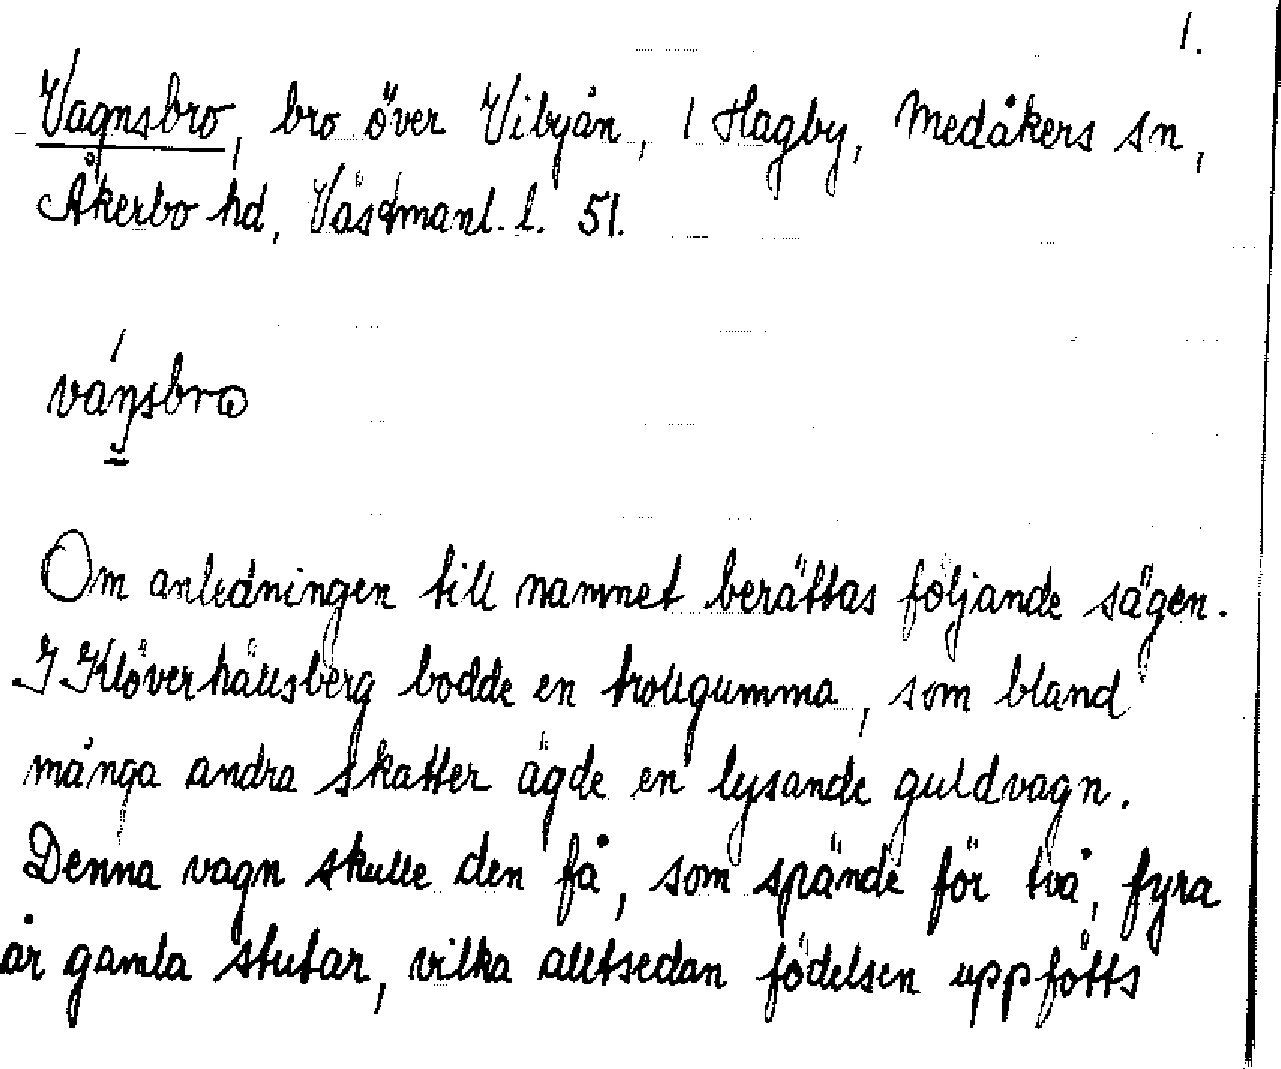 1.
Vagnsbro, bro över Vibyån, 1 Hagby, Medåkers sn,
Åkerbo hd, Västmanl. l. 51.
váŋsbro
Om anledningen till namnet berättas följande sägen.
I Klöverhällsberg bodde en trollgumma, som bland
många andra skatter ägde en lysande guldvagn.
Denna vagn skulle den få, som spände för två, fyra
år gamla stutar, vilka alltsedan födelsen uppfötts